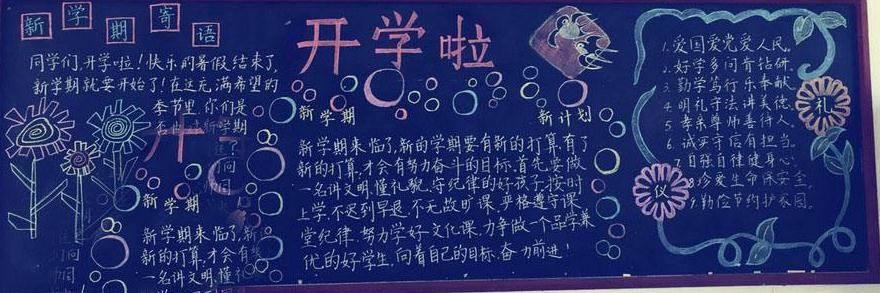 新学期寄语
同学们,开学啦!快乐的暑假结束了,
新学期就要开始了!在这充满希望的
季节里,你们是
新学期
开
新学期
新学期来临了,新
新的打算,才会有努
一名讲文明,懂礼
开学啦
新学期
新计划
新学期来临了,新的学期要有新的打算,有了
新的打算,才会有努力奋斗的目标,首先要做
一名讲文明,懂礼貌,守纪律的好孩子,按时
上学,不迟到早退,不无故旷课,严格遵守课
堂纪律,努力学好文化课,力争做一个品学兼
优的好学生,向着自己的目标,奋力前进!
1.爱国爱党爱人民。
2.好学多问肯钻研。
3.勤学笃行乐奉献。
4.明礼守法讲美德。
5.孝亲尊师善待人。
6.诚实守信有担当。
7.自强自律健身心。
8.珍爱生命保安全。
9.勤俭节约护家园。
礼
仪